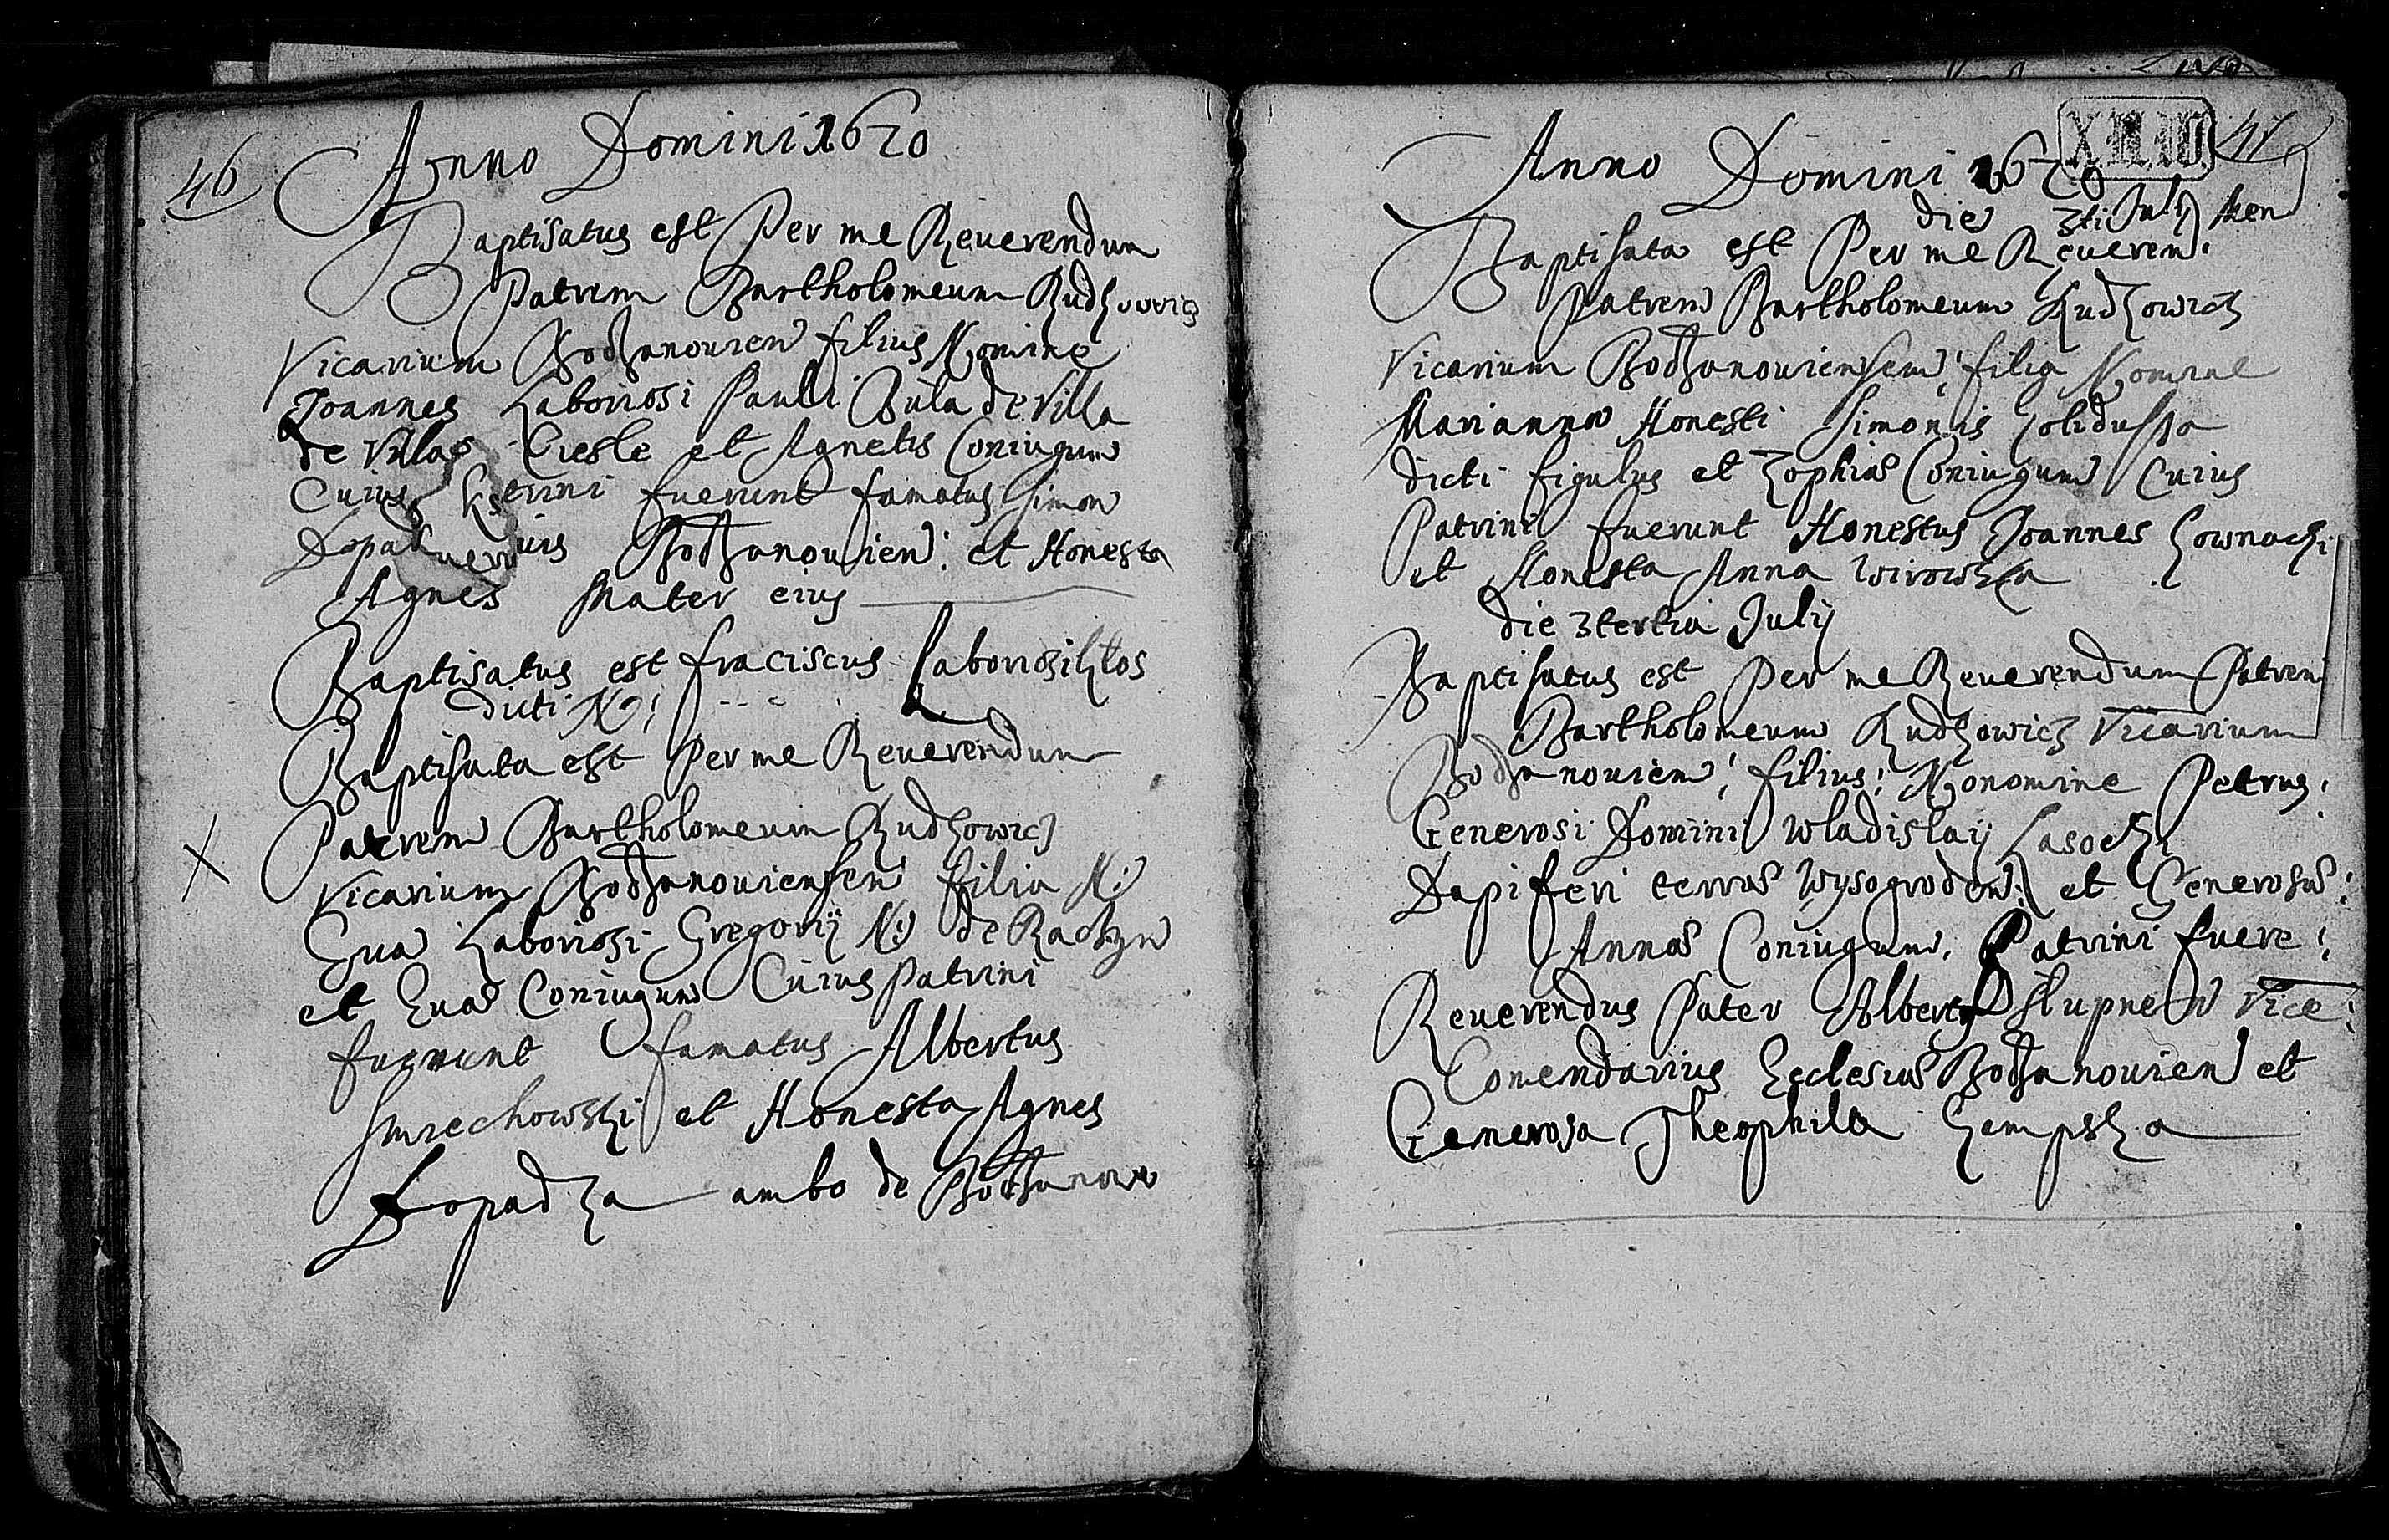 46
Anno Domini 1670
Baptisatus est Per me Reuerendum
Patrem Bartholomeum Rudzowicz
Vicarium Bodzanouien filius Nomine
Joannes Laboriosi Pauli Bula de Villa
de Villa Ciesle et Agnetis Coniugum
Cuius fuerunt famatus Simon
Bodzanouien: et Honesta
Agnes Mater eius
Baptisatus est franciscus Laboriosi
dicti N:
Baptisata est Per me Reuerendum
Patrem Bartholomeum Rudzowicz
X
Vicarium Bodzanouiensem filia N:
Eua Laboriosi Gregorij N: de
et Euae Coniugum Cuius Patrini
fuerunt famatus Albertus
Smrechowski et Honesta Agnes
Lopadka ambo de Bodzanow
47
XLIV
Anno Domini 1670
die 3tij Julij
Baptisata est Per me Reueren:
Patrem Bartholomeum Rudzowicz
Vicarium Bodzanouiensem: filia Nomine
Marianna Honesti Simonis
dicti figulus et Zophiae Coniugum Cuius
Patrini fuerunt Honestus Joannes
et Honesta Anna
die 3tertia Julij
Baptisatus est Per me Reuerendum Patrem
Bartholomeum Rudzowicz Vicarium
Bodzanouien: filius: Nonomine Petrus:
Generosi Domini Wladislaij Lasocki
Dapiferi terrae Wysogroden: et Generosae:
Annae Coniugum. Patrini fuere:
Reuerendus Pater Albertus Vice:
Comendarius Ecclesiae Bodzanouien et
Generosa Theophila Kempska